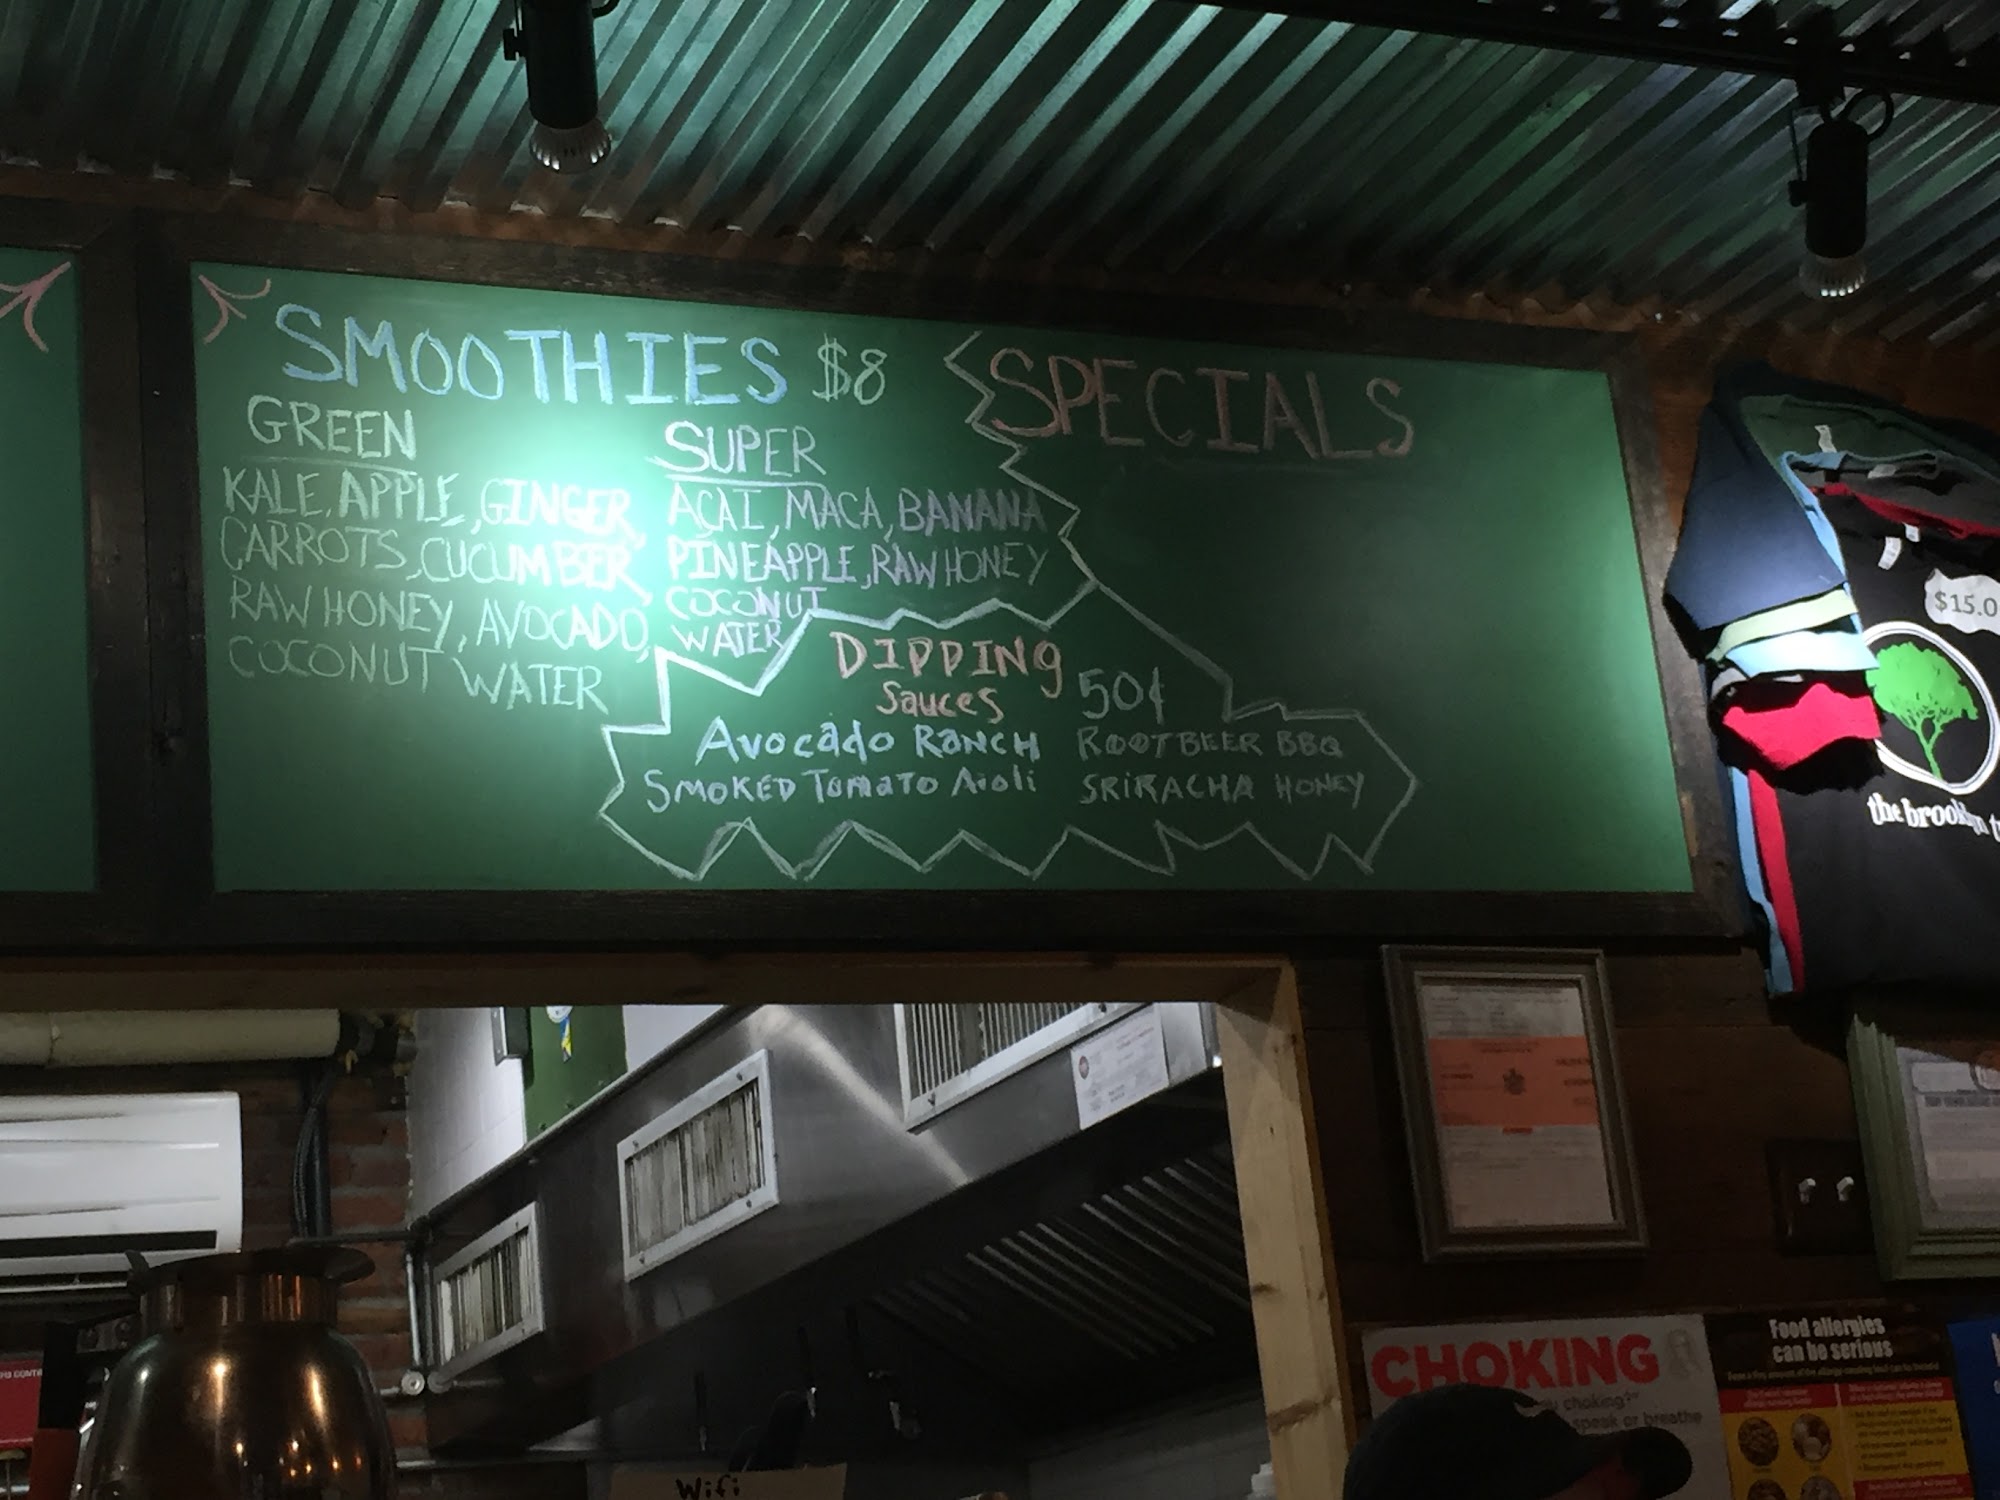 SMOOTHIES $8
GREEN
KALE, APPLE, GINGER,
CARROTS, CUCUMBER,
RAW HONEY, AVOCADO,
COCONUT WATER
SUPER
AÇAI, MACA, BANANA
PINEAPPLE, RAW HONEY
COCONUT
WATER
SPECIALS
DIPPING
Sauces
50¢
Avocado RANCH
SMOKED Tomato Aioli
ROOTBEER BBQ
SRIRACHA HONEY
$15.0
the brooklyn
CHOKING
choking?
speak or breathe
Food allergies
can be serious
Wifi